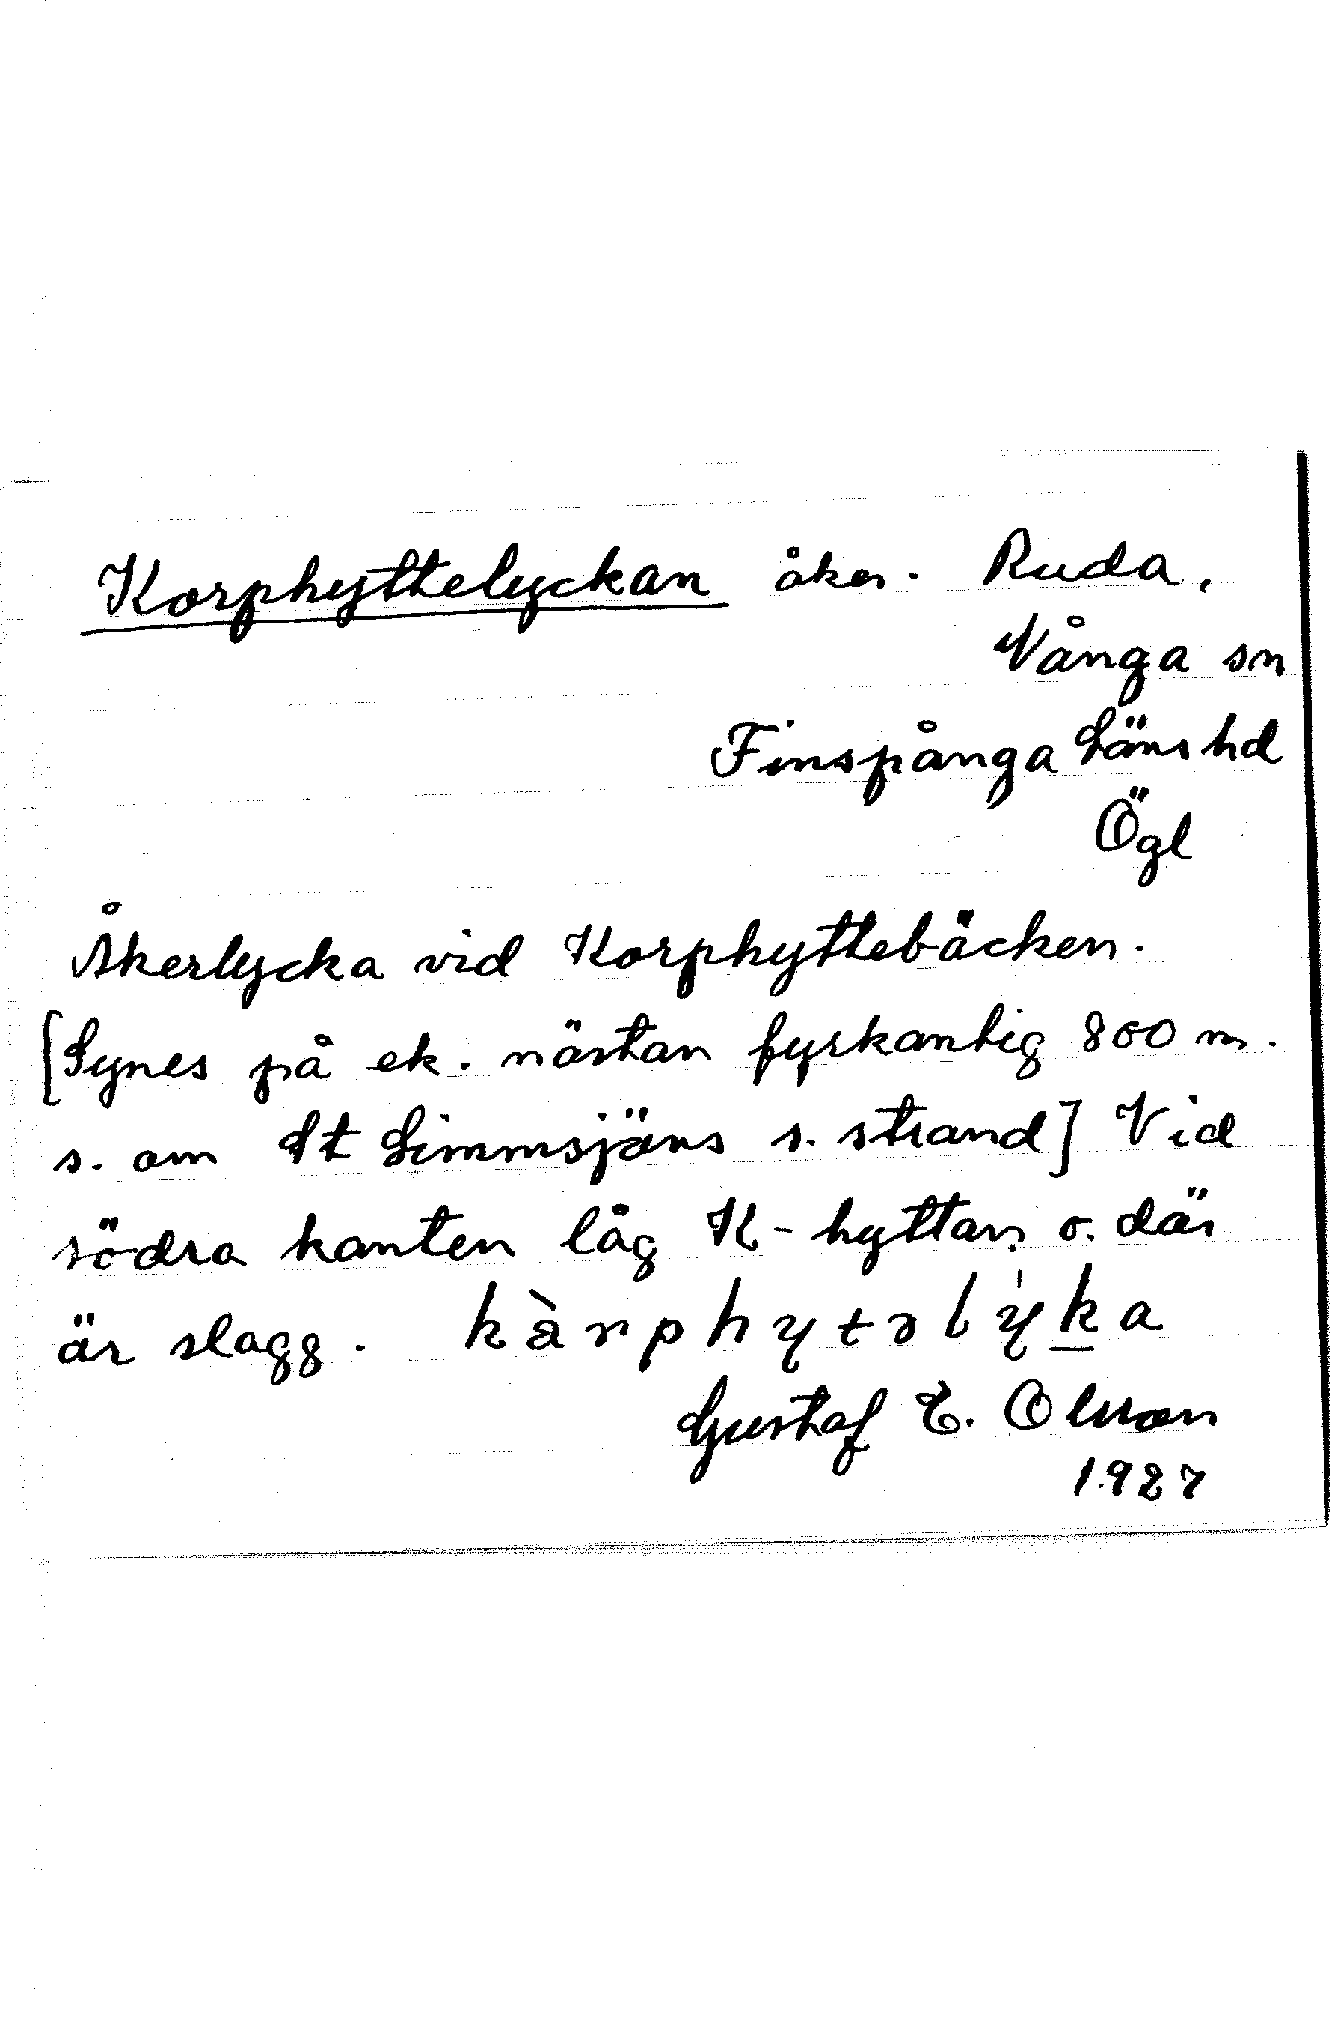 Korphyttelyckan åker. Ruda,
Vånga sn
Finspånga Läns hd
Ögl
Åkerlycka vid Korphyttebäcken.
[Synes på ek. nästan fyrkantig 800 m.
s. om St Limmsjöns s. strand] Vid
södra kanten låg K-hyttan o. där
är slagg. kàrphytəly̍k̲a
Gustaf E. Olsson
1927